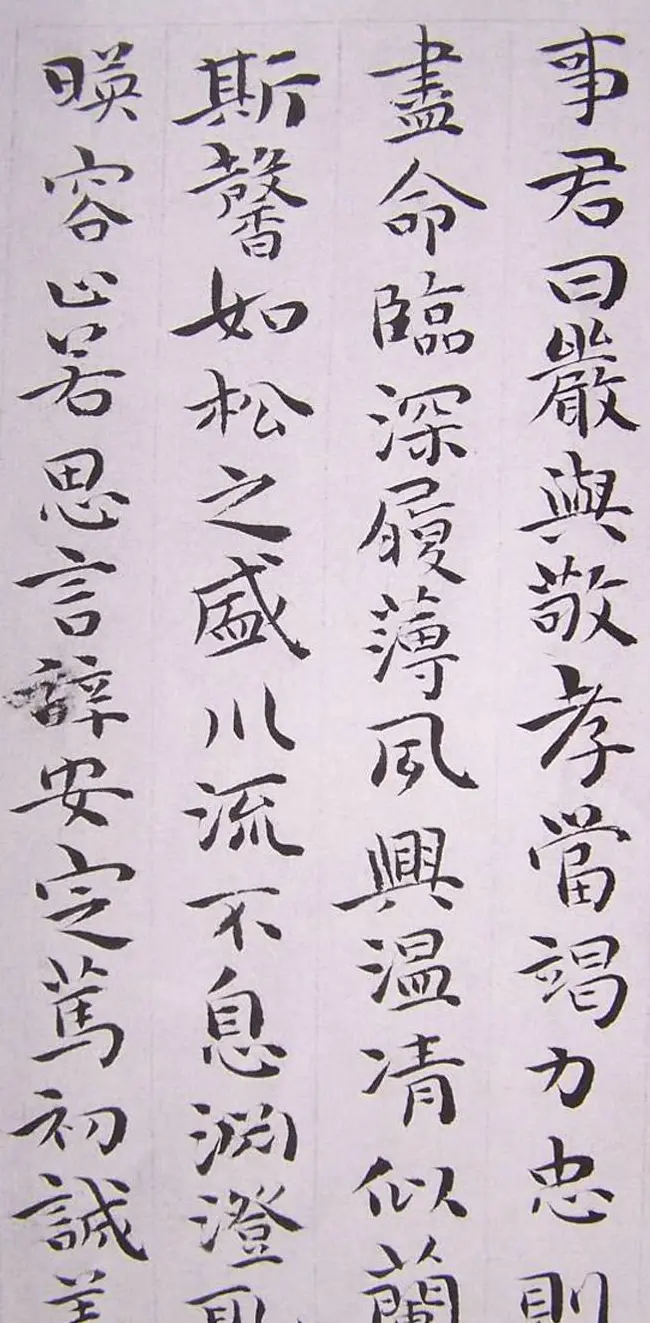 事君曰嚴與敬孝當竭力忠則
盡命臨深履薄夙興温凊似蘭
斯馨如松之盛川流不息渕澄取
暎容止若思言辞安定篤初誠美